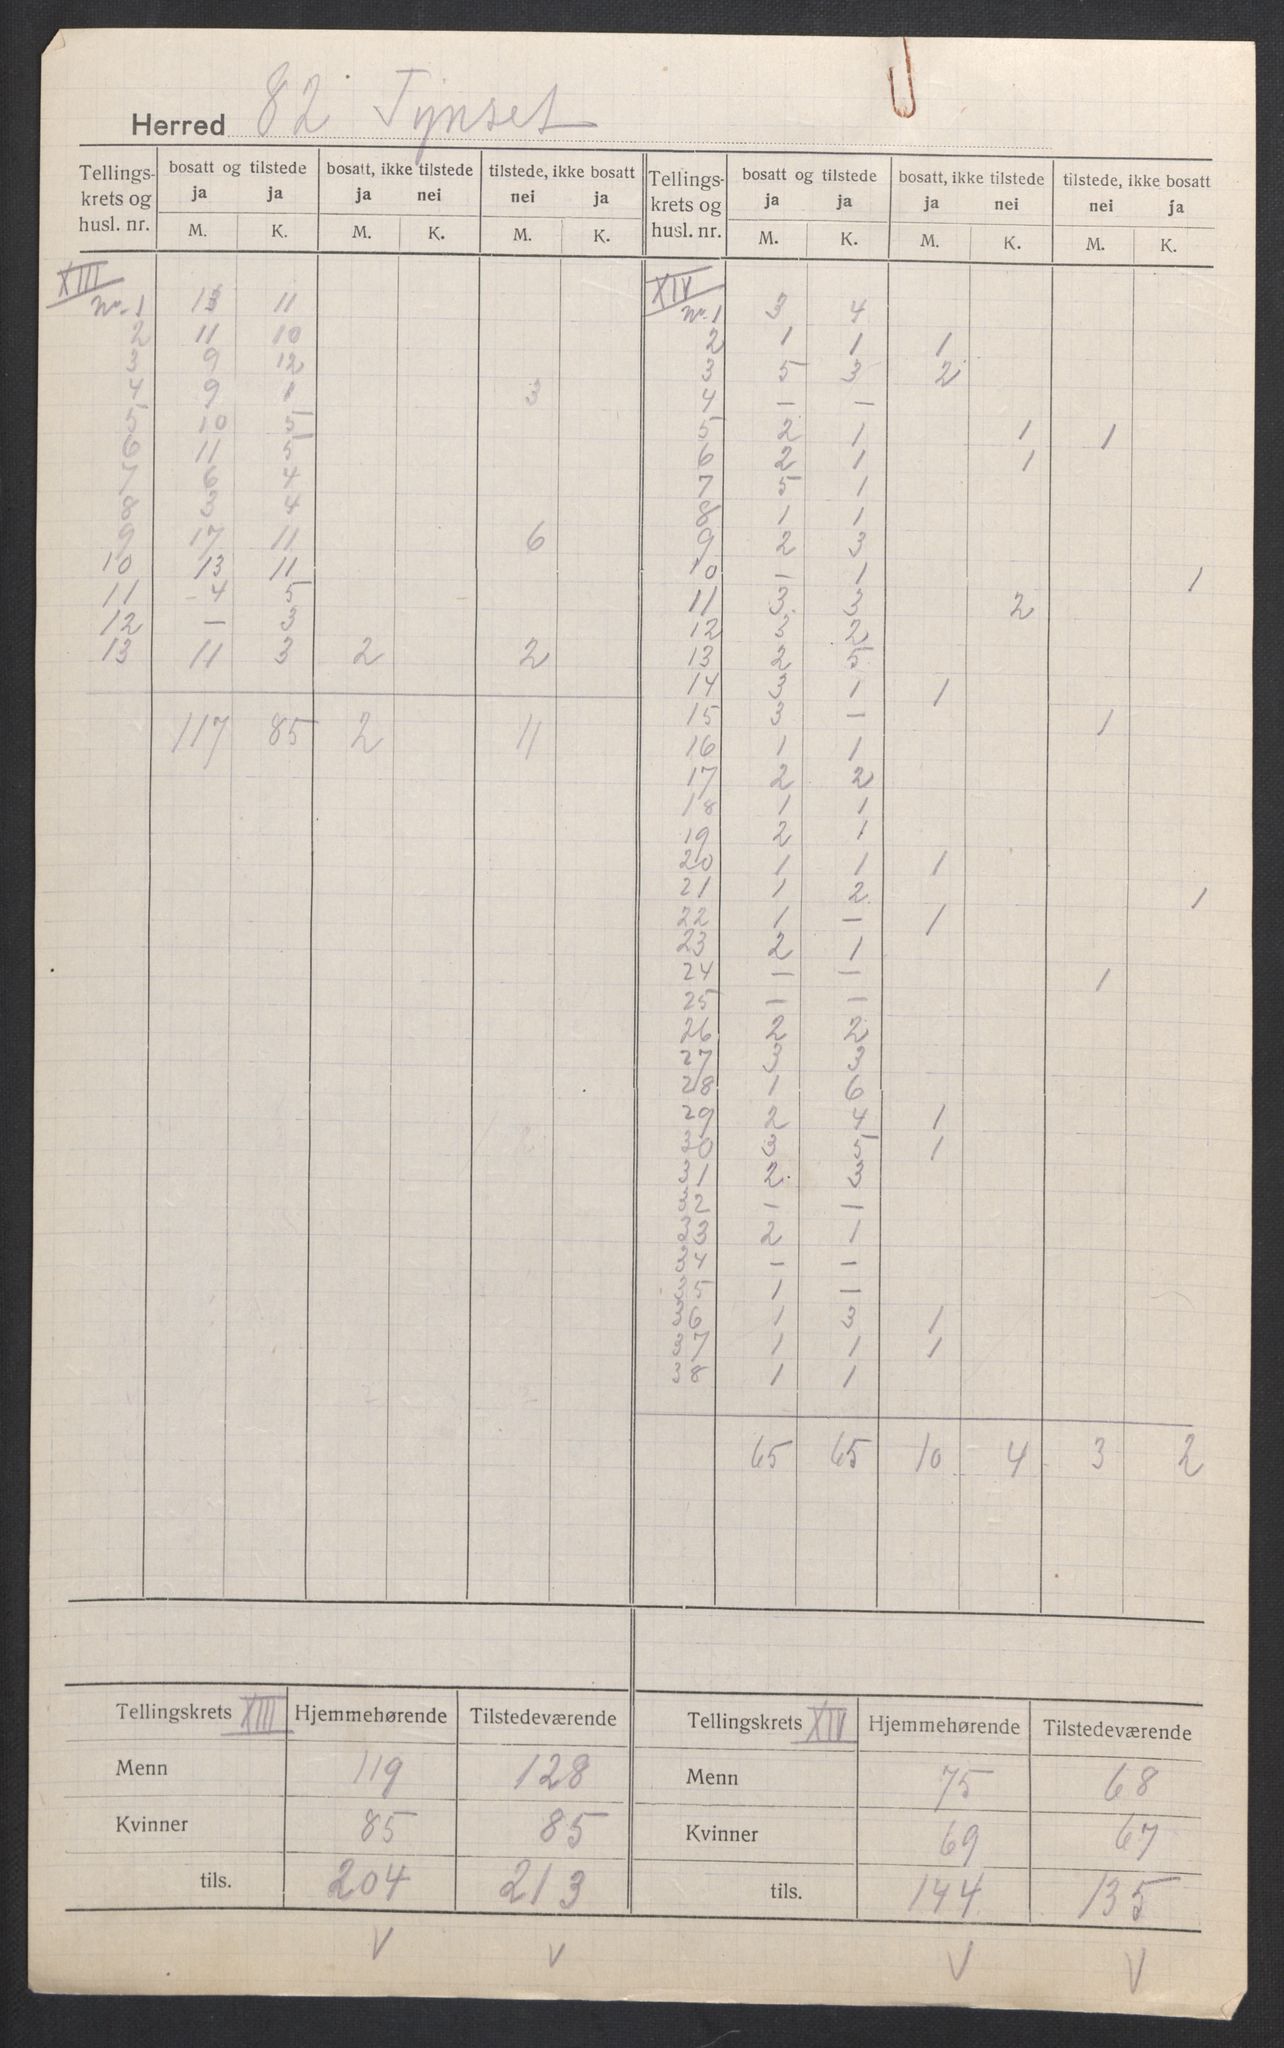 Herred 82 Tynset
Tellings-krets og husl. nr. | bosatt og tilstede ja ja | bosatt, ikke tilstede ja nei | tilstede, ikke bosatt nei ja | Tellings-krets og husl. nr. | bosatt og tilstede ja ja | bosatt, ikke tilstede ja nei | tilstede, ikke bosatt nei ja
M. K. M. K. M. K. M. K. M. K. M. K.
XIII
Nr. 1 13 11
2 11 10
3 9 12
4 9 1 3
5 10 5
6 11 5
7 6 4
8 3 4
9 17 11 6
10 13 11
11 4 5
12 – 3
13 11 3 2 2
117 85 2 11
XIV
Nr. 1 3 4
2 1 1 1
3 5 3 2
4 – –
5 2 1 1 1
6 2 1 1
7 5 1
8 1 1
9 2 3
10 – 1 1
11 3 3 2
12 3 2
13 2 5
14 3 1 1
15 3 – 1
16 1 1
17 2 2
18 1 1
19 2 1
20 1 1 1
21 1 2 1
22 1 – 1
23 2 1
24 – – 1
25 – –
26 2 2
27 3 3
28 1 6
29 2 4 1
30 3 5 1
31 2 3
32 1 1
33 2 1
34 – –
35 1 1
36 1 3 1
37 1 1 1
38 1 1
65 65 10 4 3 2
Tellingskrets XIII Hjemmehørende Tilstedeværende
Menn 119 128
Kvinner 85 85
tils. 204 213
V V
Tellingskrets XIV Hjemmehørende Tilstedeværende
Menn 75 68
Kvinner 69 67
tils. 144 135
V V